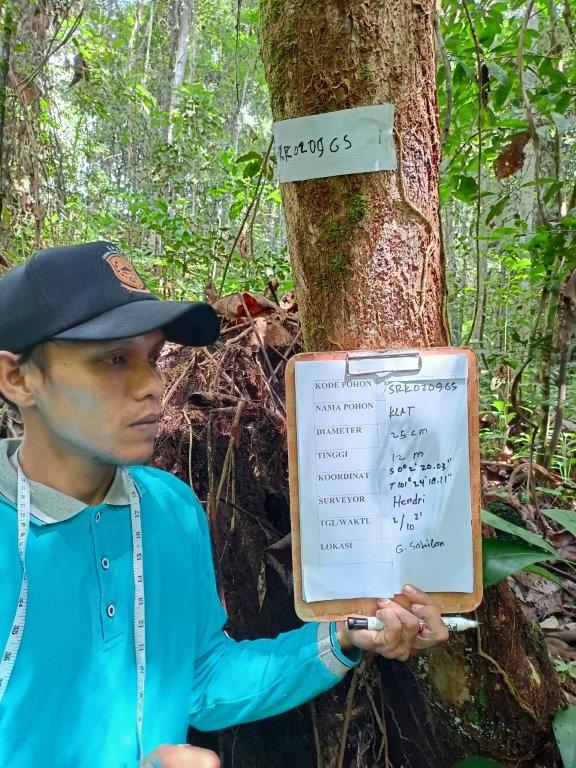 KK0209GS
KODE POHON SRK0209GS
NAMA POHON KLAT
DIAMETER 25 cm
TINGGI 12 m
KOORDINAT S 0° 2' 20.03"
T 101° 24' 10.11"
SURVEYOR Hendri
TGL/WAKTU 2/10 21
LOKASI G. Sahilan